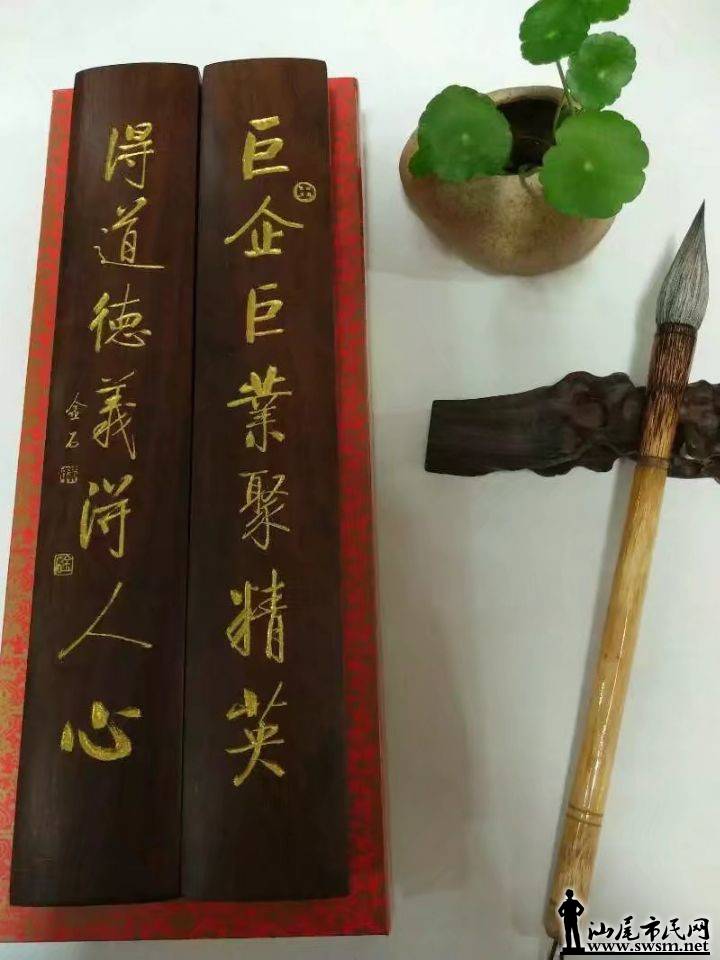 巨企巨業聚精英
得道德義得人心
金石
汕尾市民网
www.swsm.net